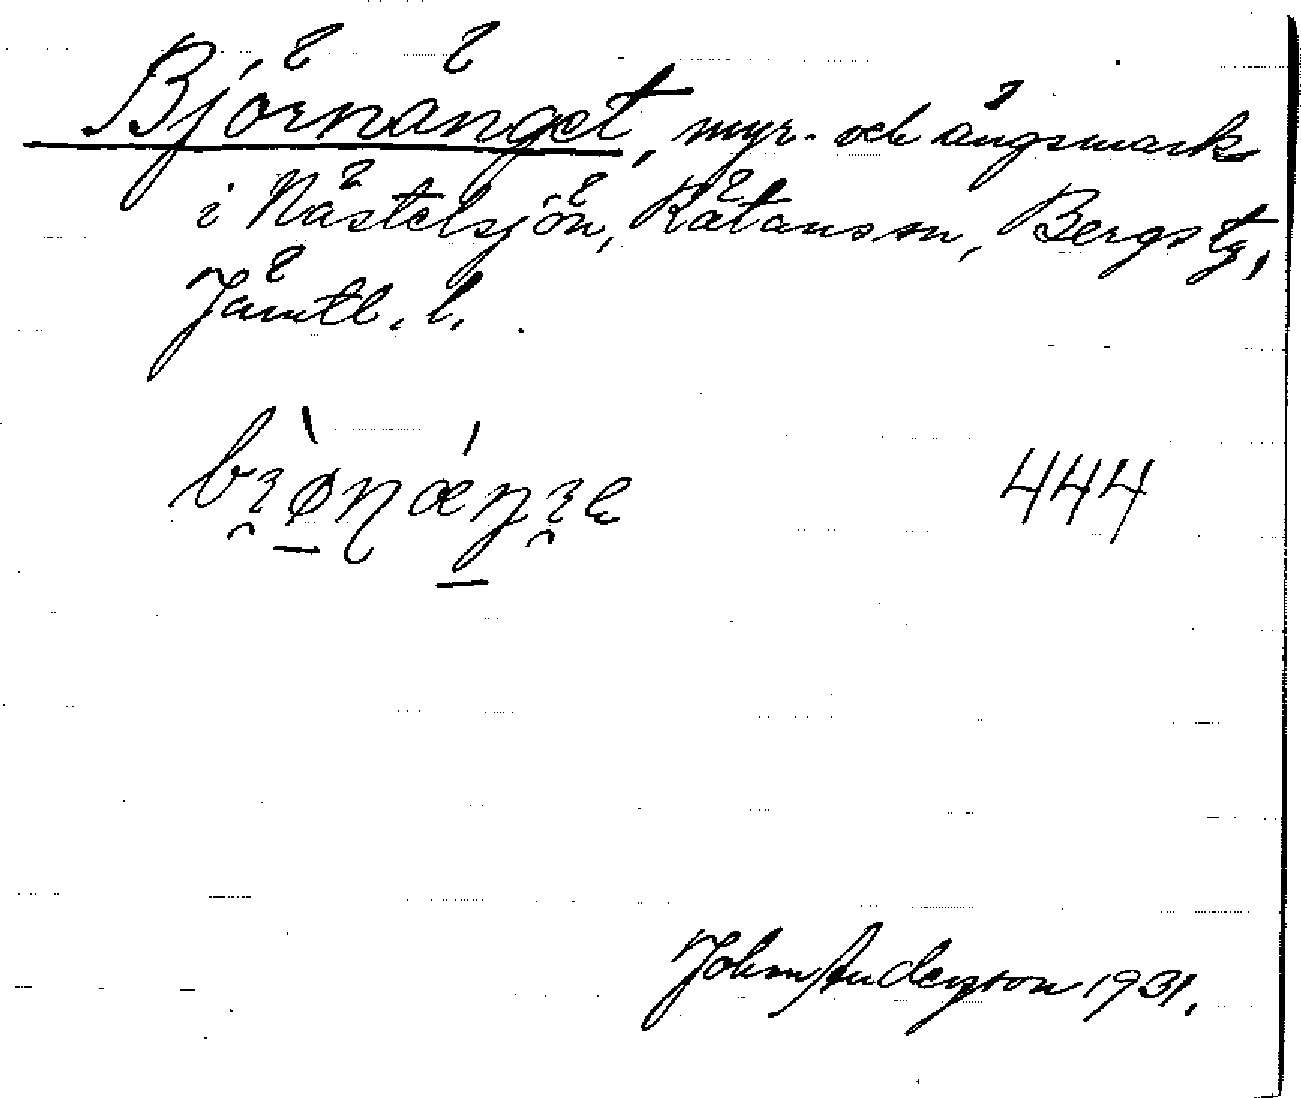 Björnänget, myr- och ängsmark
i Nästelsjön, Rätans sn, Bergs tg,
Jämtl. l.
444
John Anderson 1931.